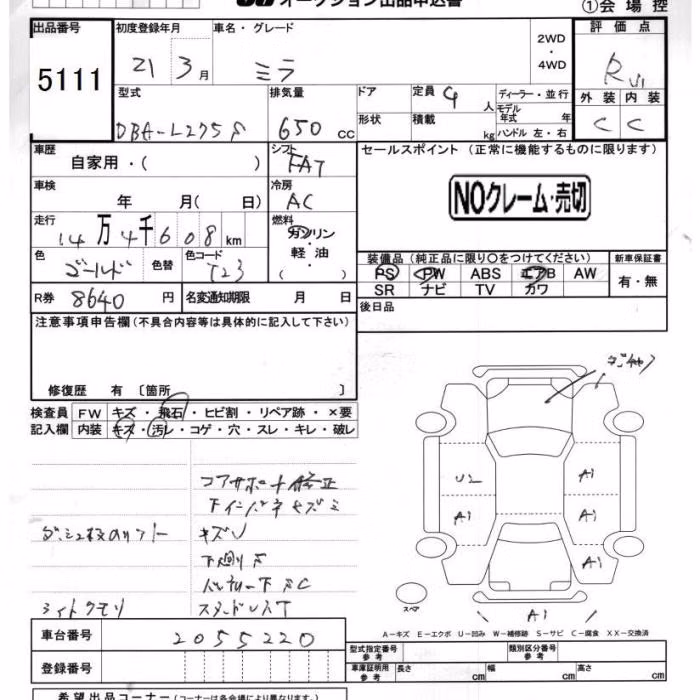 オークション出品申込書 ①会場控
出品番号 初度登録年月 車名・グレード 評価点
5111 21 3月 ミラ 2WD・4WD R
型式 排気量 ドア 定員 4人 ディーラー・並行 外装 内装
DBA-L275S 650cc 形状 積載 kg モデル年式 年 ハンドル 左・右 C C
車歴 シフト セールスポイント (正常に機能するものに限ります)
自家用・( ) FAT
車検 冷房 NOクレーム・売切
年 月( 日) AC
走行 燃料
14万4千608km ガソリン・軽油・( )
色 色替 色コード 装備品 (純正品に限り〇をつけてください) 新車保証書
ゴールド T23 PS PW ABS エアB AW 有・無
SR ナビ TV カワ
R券 8640円 名変通知期限 月 日 後日品
注意事項申告欄 (不具合内容等は具体的に記入して下さい)
修復歴 有 〔箇所 〕
検査員 FW キズ・飛石・ヒビ割・リペア跡・×要
記入欄 内装 キズ・汚レ・コゲ・穴・スレ・キレ・破レ
U2 A1
A1 A1
A1
A1
コアサポート修正
キズ
下廻りS
バッテリー下SC
ライトクモリ
スペア
A-キズ E-エクボ U-凹み W-補修跡 S-サビ C-腐食 XX-交換済
車台番号 2055220 型式指定番号 参考 類別区分番号 参考
登録番号 車庫証明用 参考 長さ cm 幅 cm 高さ cm
希望出品コーナー (コーナーは各会場により異なります。)